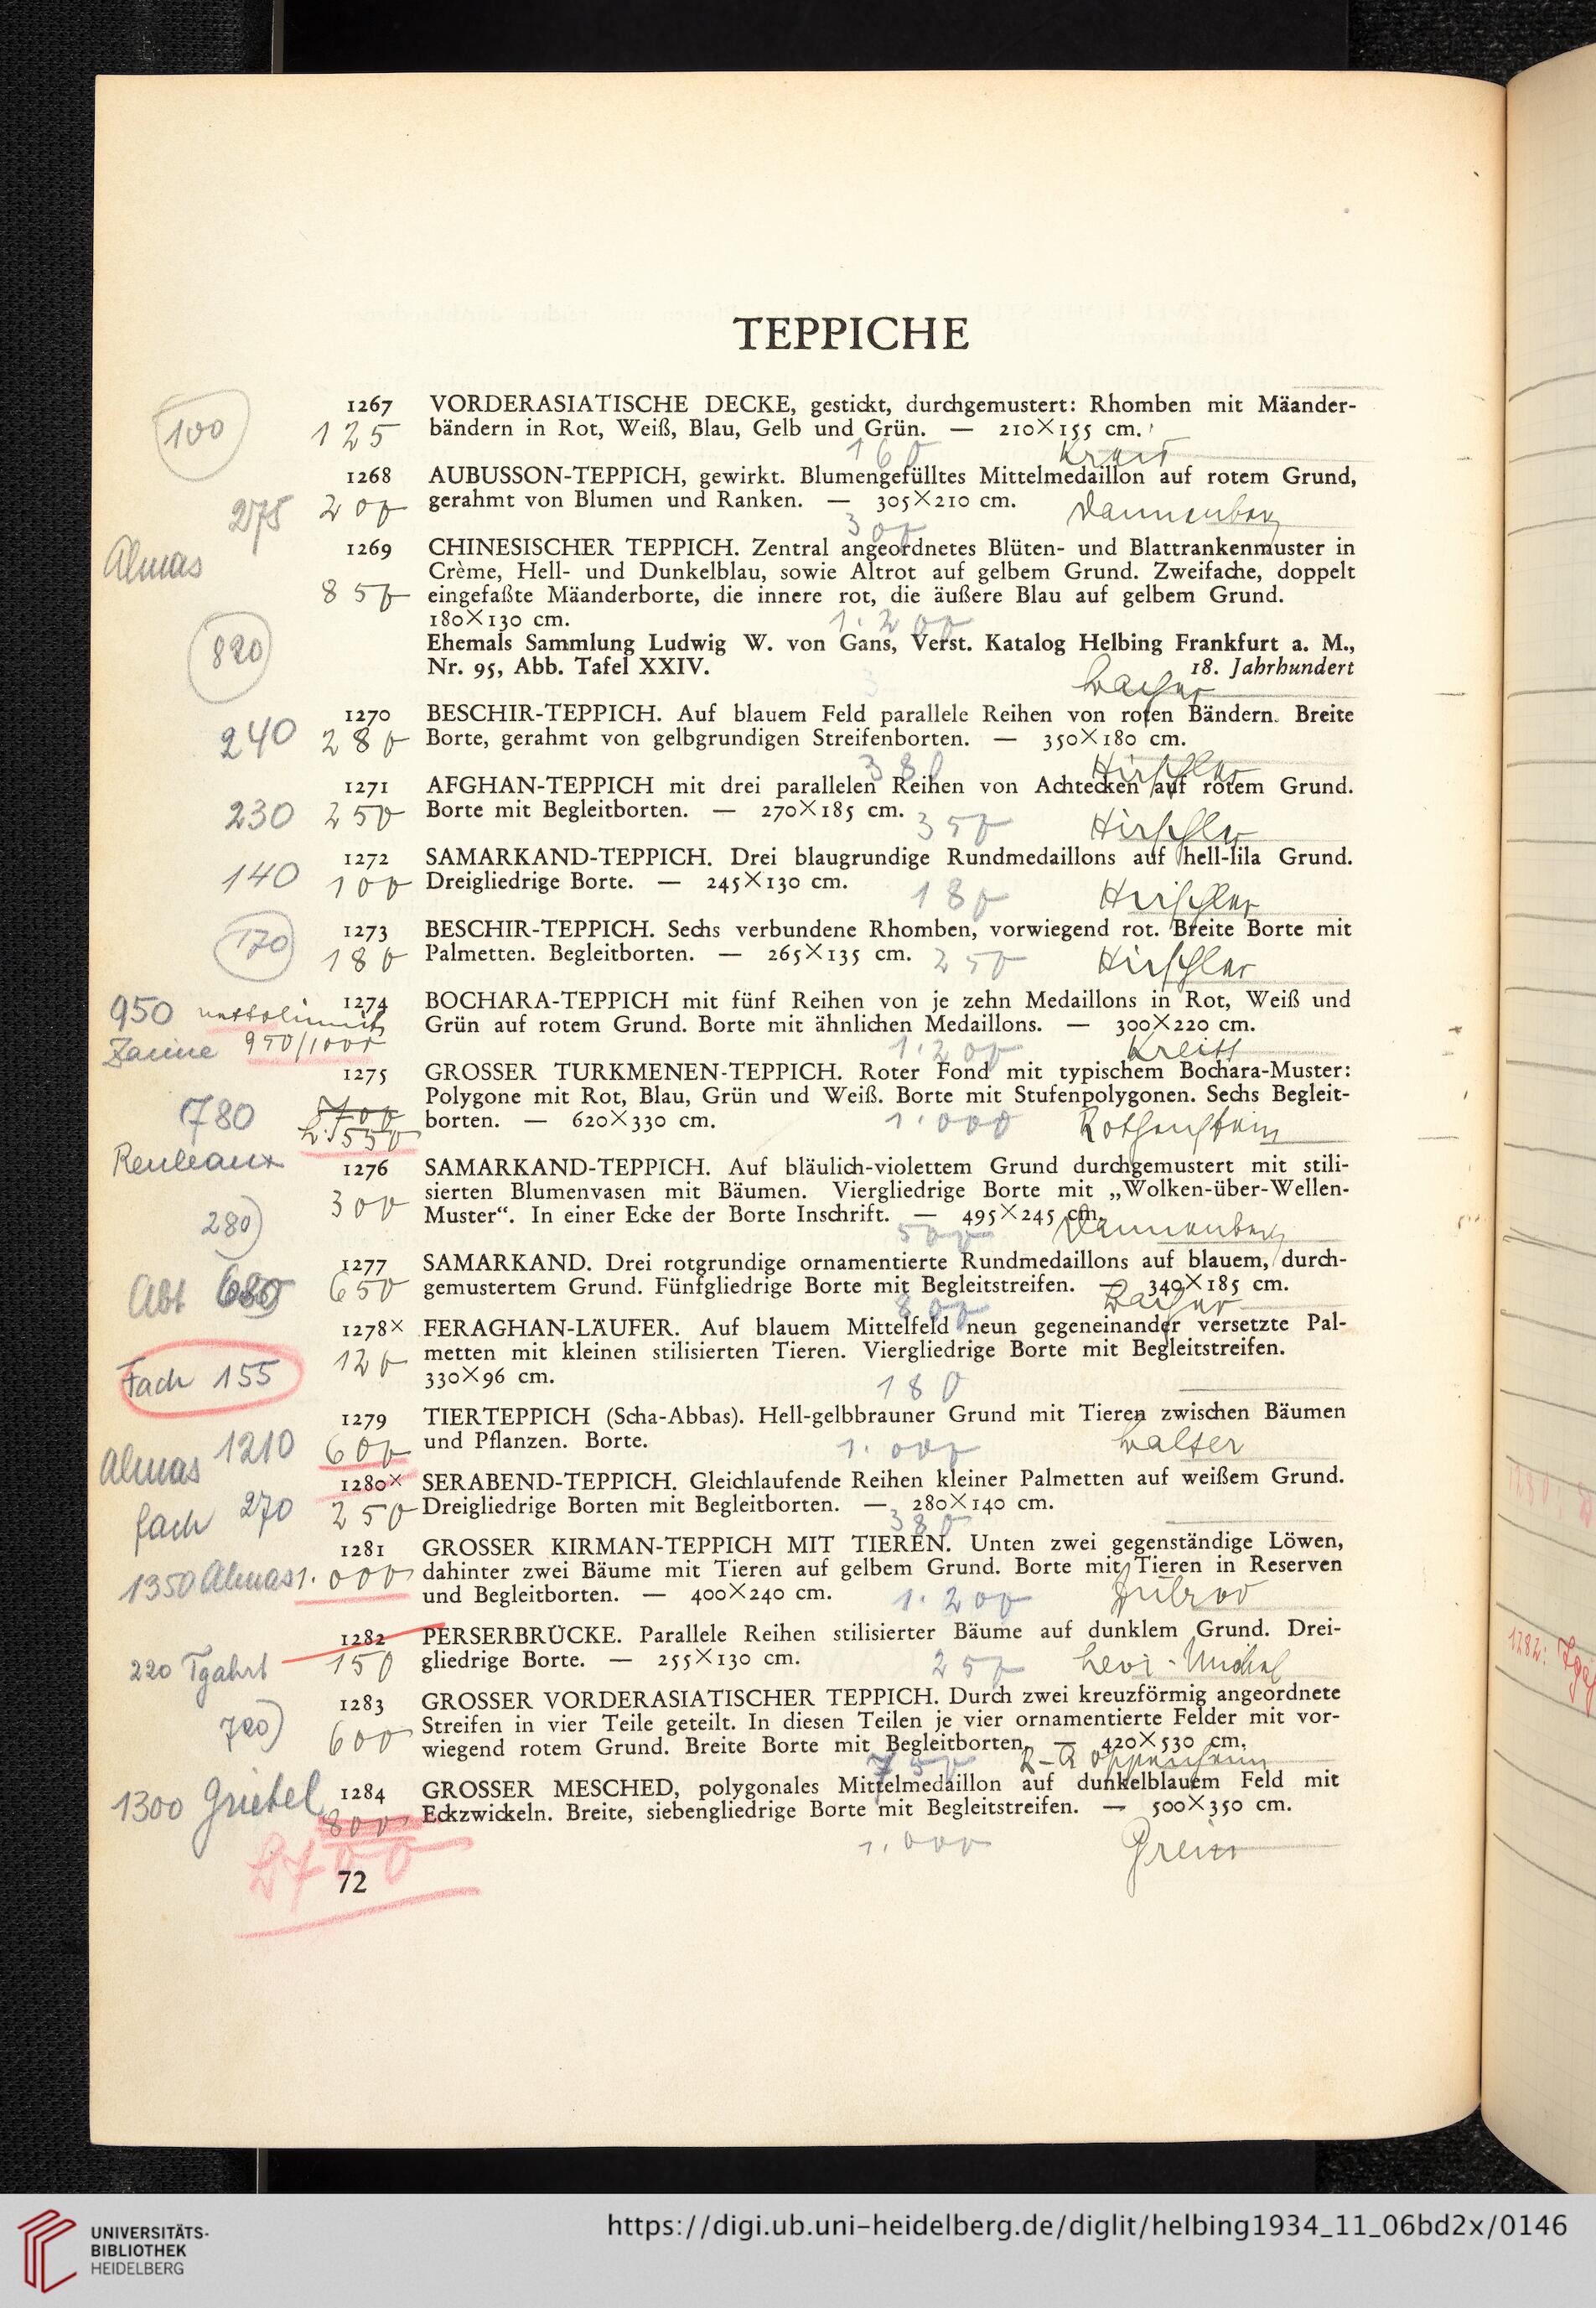 TEPPICHE
100
1267 VORDERASIATISCHE DECKE, gestickt, durchgemustert: Rhomben mit Mäander-
125 bändern in Rot, Weiß, Blau, Gelb und Grün. — 210×155 cm.
160
1268 AUBUSSON-TEPPICH, gewirkt. Blumengefülltes Mittelmedaillon auf rotem Grund,
275 200 gerahmt von Blumen und Ranken. — 305×210 cm. Dannenberg
300
Almas
1269 CHINESISCHER TEPPICH. Zentral angeordnetes Blüten- und Blattrankenmuster in
Crème, Hell- und Dunkelblau, sowie Altrot auf gelbem Grund. Zweifache, doppelt
850 eingefaßte Mäanderborte, die innere rot, die äußere Blau auf gelbem Grund.
180×130 cm. 1.200
820
Ehemals Sammlung Ludwig W. von Gans, Verst. Katalog Helbing Frankfurt a. M.,
Nr. 95, Abb. Tafel XXIV. 18. Jahrhundert
1270 BESCHIR-TEPPICH. Auf blauem Feld parallele Reihen von roten Bändern. Breite
240 280 Borte, gerahmt von gelbgrundigen Streifenborten. — 350×180 cm.
380 Hirschler
1271 AFGHAN-TEPPICH mit drei parallelen Reihen von Achtecken auf rotem Grund.
230 250 Borte mit Begleitborten. — 270×185 cm. 350 Hirschler
1272 SAMARKAND-TEPPICH. Drei blaugrundige Rundmedaillons auf hell-lila Grund.
140 100 Dreigliedrige Borte. — 245×130 cm. 180 Hirschler
1273 BESCHIR-TEPPICH. Sechs verbundene Rhomben, vorwiegend rot. Breite Borte mit
170 180 Palmetten. Begleitborten. — 265×135 cm. 250 Hirschler
950 1274 BOCHARA-TEPPICH mit fünf Reihen von je zehn Medaillons in Rot, Weiß und
950/1000 Grün auf rotem Grund. Borte mit ähnlichen Medaillons. — 300×220 cm.
1.200
1275 GROSSER TURKMENEN-TEPPICH. Roter Fond mit typischem Bochara-Muster:
Polygone mit Rot, Blau, Grün und Weiß. Borte mit Stufenpolygonen. Sechs Begleit-
780 700 borten. — 620×330 cm. 1.000 Rothenstein
L. 550
Reuleaux
1276 SAMARKAND-TEPPICH. Auf bläulich-violettem Grund durchgemustert mit stili-
300 sierten Blumenvasen mit Bäumen. Viergliedrige Borte mit „Wolken-über-Wellen-
280 Muster“. In einer Ecke der Borte Inschrift. — 495×245 cm. Dannenberg
500
1277 SAMARKAND. Drei rotgrundige ornamentierte Rundmedaillons auf blauem, durch-
Abt 680 650 gemustertem Grund. Fünfgliedrige Borte mit Begleitstreifen. — 340×185 cm.
800
1278× FERAGHAN-LÄUFER. Auf blauem Mittelfeld neun gegeneinander versetzte Pal-
Fach 155 120 metten mit kleinen stilisierten Tieren. Viergliedrige Borte mit Begleitstreifen.
330×96 cm. 180
1279 TIERTEPPICH (Scha-Abbas). Hell-gelbbrauner Grund mit Tieren zwischen Bäumen
Almas 1210 600 und Pflanzen. Borte. 1.000 Walter
1280× SERABEND-TEPPICH. Gleichlaufende Reihen kleiner Palmetten auf weißem Grund.
Fach 270 250 Dreigliedrige Borten mit Begleitborten. — 280×140 cm.
380
1281 GROSSER KIRMAN-TEPPICH MIT TIEREN. Unten zwei gegenständige Löwen,
1350 Almas 1.000 dahinter zwei Bäume mit Tieren auf gelbem Grund. Borte mit Tieren in Reserven
und Begleitborten. — 400×240 cm. 1.200
1282 PERSERBRÜCKE. Parallele Reihen stilisierter Bäume auf dunklem Grund. Drei-
220 Tgahrt 150 gliedrige Borte. — 255×130 cm. 250 Levi-Michel
1283 GROSSER VORDERASIATISCHER TEPPICH. Durch zwei kreuzförmig angeordnete
720 600 Streifen in vier Teile geteilt. In diesen Teilen je vier ornamentierte Felder mit vor-
wiegend rotem Grund. Breite Borte mit Begleitborten. — 420×530 cm.
750 Oppenheim
1300 1284 GROSSER MESCHED, polygonales Mittelmedaillon auf dunkelblauem Feld mit
800 Eckzwickeln. Breite, siebengliedrige Borte mit Begleitstreifen. — 500×350 cm.
L 700 1.000
72
UNIVERSITÄTS-
BIBLIOTHEK
HEIDELBERG
https://digi.ub.uni-heidelberg.de/diglit/helbing1934_11_06bd2x/0146